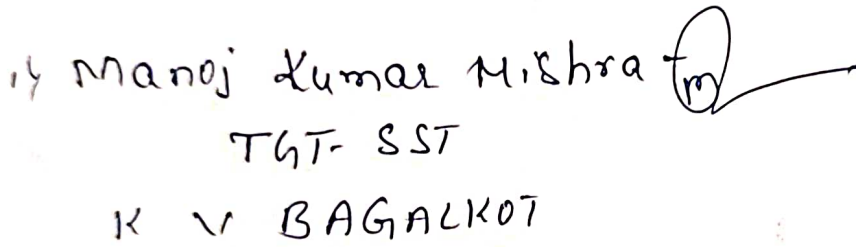 1) Manoj Kumar Mishra
TGT- SST
K V BAGALKOT